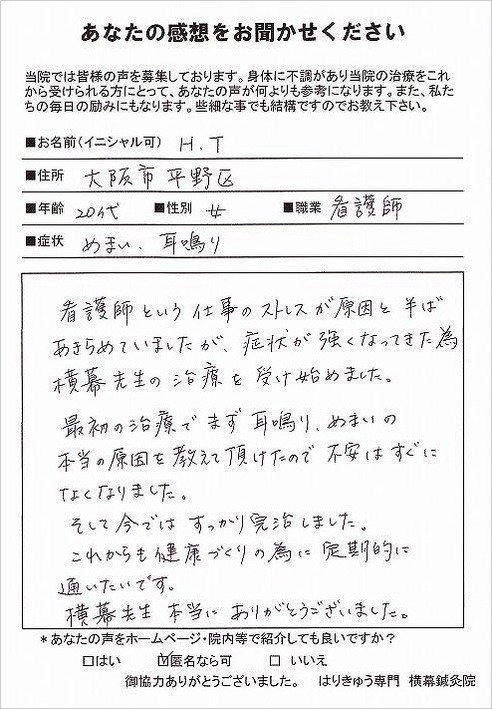 あなたの感想をお聞かせください
当院では皆様の声を募集しております。身体に不調があり当院の治療をこれ
から受けられる方にとって、あなたの声が何よりも参考になります。また、私た
ちの毎日の励みにもなります。些細な事でも結構ですのでお教え下さい。
■お名前(イニシャル可) H.T
■住所 大阪市平野区
■年齢 20代 ■性別 女 ■職業 看護師
■症状 めまい、耳鳴り
看護師という仕事のストレスが原因と半ば
あきらめていましたが、症状が強くなってきた為
横幕先生の治療を受け始めました。
最初の治療でまず耳鳴り、めまいの
本当の原因を教えて頂けたので不安はすぐに
なくなりました。
そして今ではすっかり完治しました。
これからも健康づくりの為に定期的に
通いたいです。
横幕先生本当にありがとうございました。
*あなたの声をホームページ・院内等で紹介しても良いですか?
□はい ☑匿名なら可 □ いいえ
御協力ありがとうございました。 はりきゅう専門 横幕鍼灸院